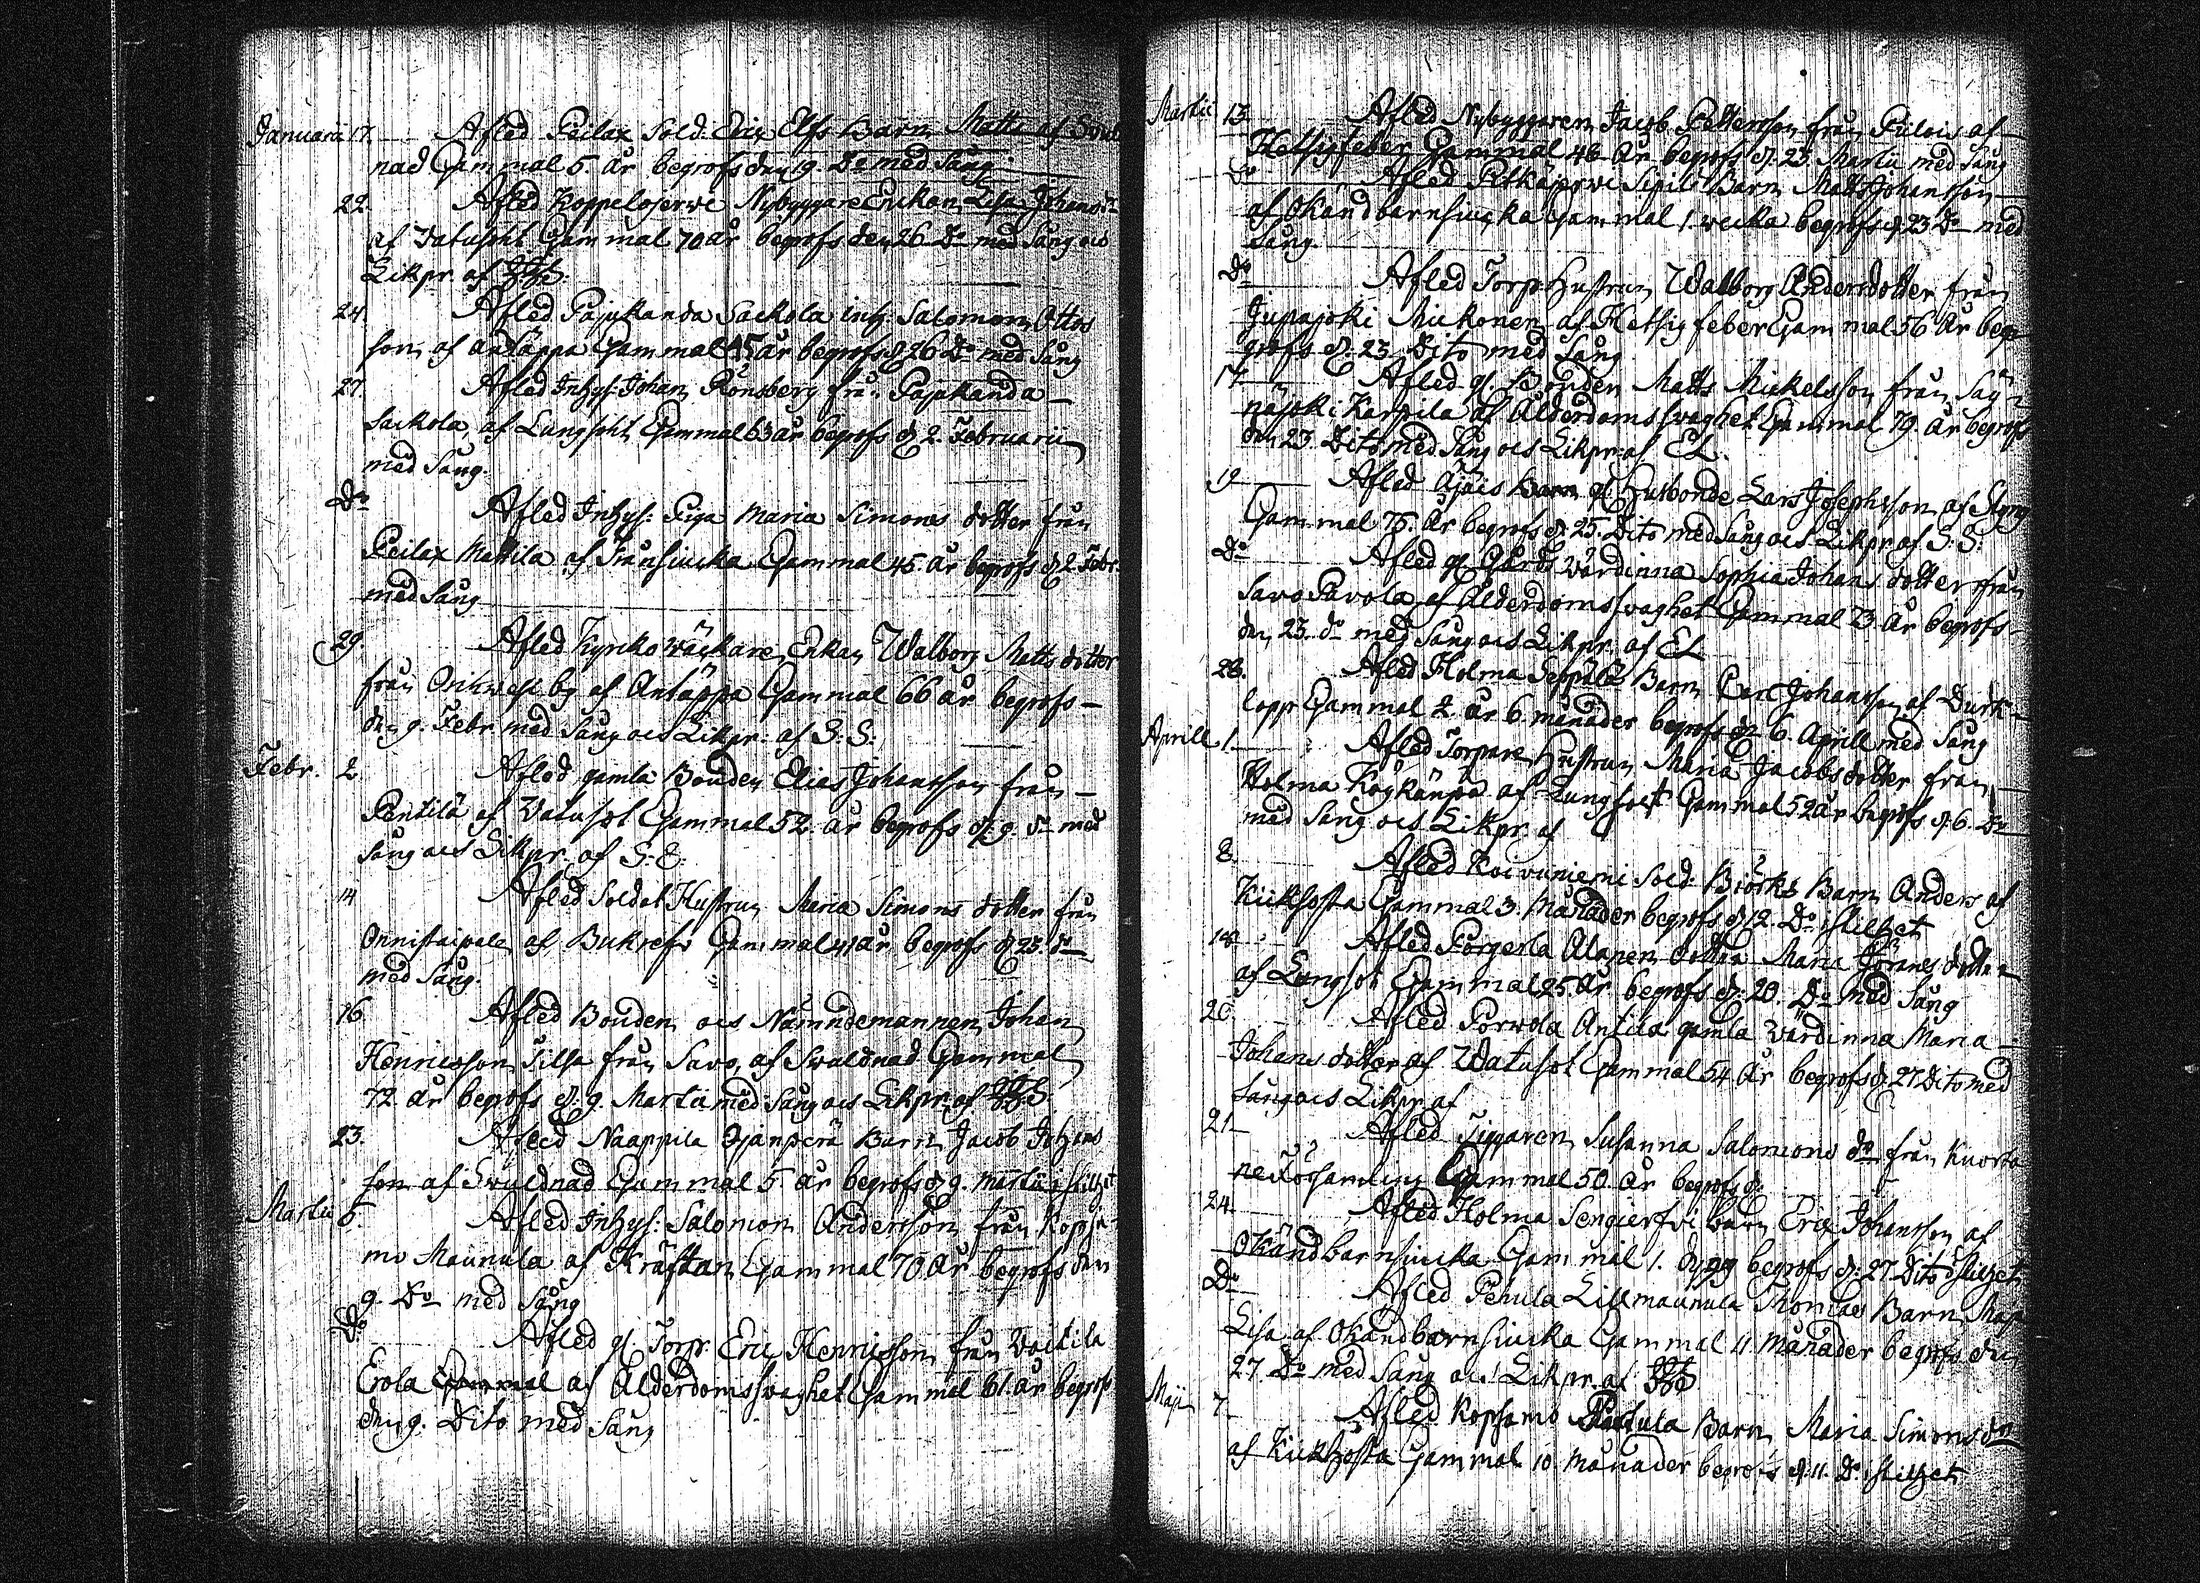 Januarii 17. Afled Peilax Sold: Eric Elfs Barn Matts af Svul
nad Gammal 5. år begrofs den 19. Do med Sång
22. Afled Koppelojerwi Nybyggare Enkan Lisa Johansdr
af Vatusot Gammal 70 år begrofs den 26 Do med Sång och
Likpr. af
24. Afled Pajukanda Sackola inh. Salomon Ottos
son af andtäppa Gammal 45 år begrofs d. 26 Do med Sång
27. Afled Inhys: Johan Rönsberg från Pajukanda
Sackola af Lungsot Gammal 63 år begrofs d 2. Februarii
med Sång.
Do Afled Inhys: Piga Maria Simons dotter från
Peilax Mattila af Trånsiucka Gammal 45. år begrofs d 2 Febr.
med Sång
29. Afled Kyrko wäckare Enkan Walborg Matts dotter
från Orihwesi by af Antäppa Gammal 66 år begrofs
den 9. Febr med Sång och Likpr: af S: S:
Febr. 2. Afled gamla Bonden Elias Johansson från
Pentilä af Vatusot Gammal 52. år begrofs d. 9. do med
Sång och Likpr. af S: E:
14 Afled Soldat Hustrun Maria Simons dotter från
Onnistaipale af Bukref Gammal 41 år begrofs d 23. do
med Sång.
16. Afled Bonden och Nämndemannen Johan
Henricsson Tilsa från Savo, af Swulnad Gammal
72. år begrofs d. 9. Martii med Sång och Likpr. af
23. Afled Naappila Ojanperä Barn Jacob Johans
son af Swulnad Gammal 5 år begrofs d 9. Martii i stilhet
Martii 5. Afled Inhys: Salomon Andersson från Kopsa
mo Maunula af Kräftan Gammal 70 år begrofs den
9. Do med Sång
Do Afled gl. Torp: Eric Henricsson från Voitila
Erola Gammal af Ålderdomsswaghet Gammal 61. år begrofs
den 9. Dito med Sång
Martii 13 Afled Nybyggaren Jacob Pettersson från Pulois af
Hetsigfeber Gammal 48 år begrofs d. 23 Martii med Sång
Do Afled Petkäjerwi Sipilä Barn Matts Johansson
af Okänd barnsiucka Gammal 1. wecka begrofs d 23 Do med
Sång
Do Afled Torp Hustrun Walborg Andersdotter från
Jupajoki Mickonen af Hetsig feber Gammal 56 år beg
grofs d. 23 Dito med Sång
17. Afled gl. Bonden Matts Mickelsson från Säy
näjoki Karpila af Ålderdomsswaghet Gammal 79. år begrofs
den 23. Dito med Sång och Likpr. af EL.
19 Afled Äjäis Barn gl. Husbonde Lars Josephsson af Styng
Gammal 75. år begrofs d. 25. Dito med Sång och Likpr. af S: S:
Do Afled gl. Gårds Värdinna Sophia Johans dotter från
Savo Pavola af Ålderdomsswaghet Gammal 73 år begrofs
den 23. do med Sång och Likpr. af EL
28. Afled Holma Seppälä Barn Carl Johansson af Durk
lopp Gammal 2. år 6. månader begrofs d. 6. Aprill med Sång
Aprill 1. Afled Torpare Hustrun Maria Jacobsdotter från
Holma Köykänpä af Lungsoet Gammal 52 år begrofs d. 6. Do
med Sång och Likpr. af
8. Afled Koivuniemi Sold: Biörks Barn Anders af
Kiikhosta Gammal 3. månader begrofs d 12. Do i stilhet
18. Afled Alanen dotter Maria Görans dotter
af Lungsot Gammal 25. år begrofs d: 20. Do med Sång
20. Afled Porwola Antila gamla Värdinna Maria
Johans dotter af Vatusot Gammal 54 år begrofs d. 27 Dito med
Sång och Likpr. af
21. Afled Tiggaren Susanna Salomons dr från Kuorta
ne församling Gammal 50. år begrofs d.
24. Afled Holma Sengierfvi barn Eric Johansson af
Okänd barnsiucka Gammal 1. dygn begrofs d: 27. Dito i stilhet
Do Afled Pehula Lillmaunula Barn Maj
Lisa af Okänd barnsiucka Gammal 11 månader begrofs den
27. Do med Sång och Likpr. af
Maji 7. Afled Kopsamo Barn Maria Simonsdr
af Kiikhosta Gammal 10. månader begrofs d. 11. Do i stilhet